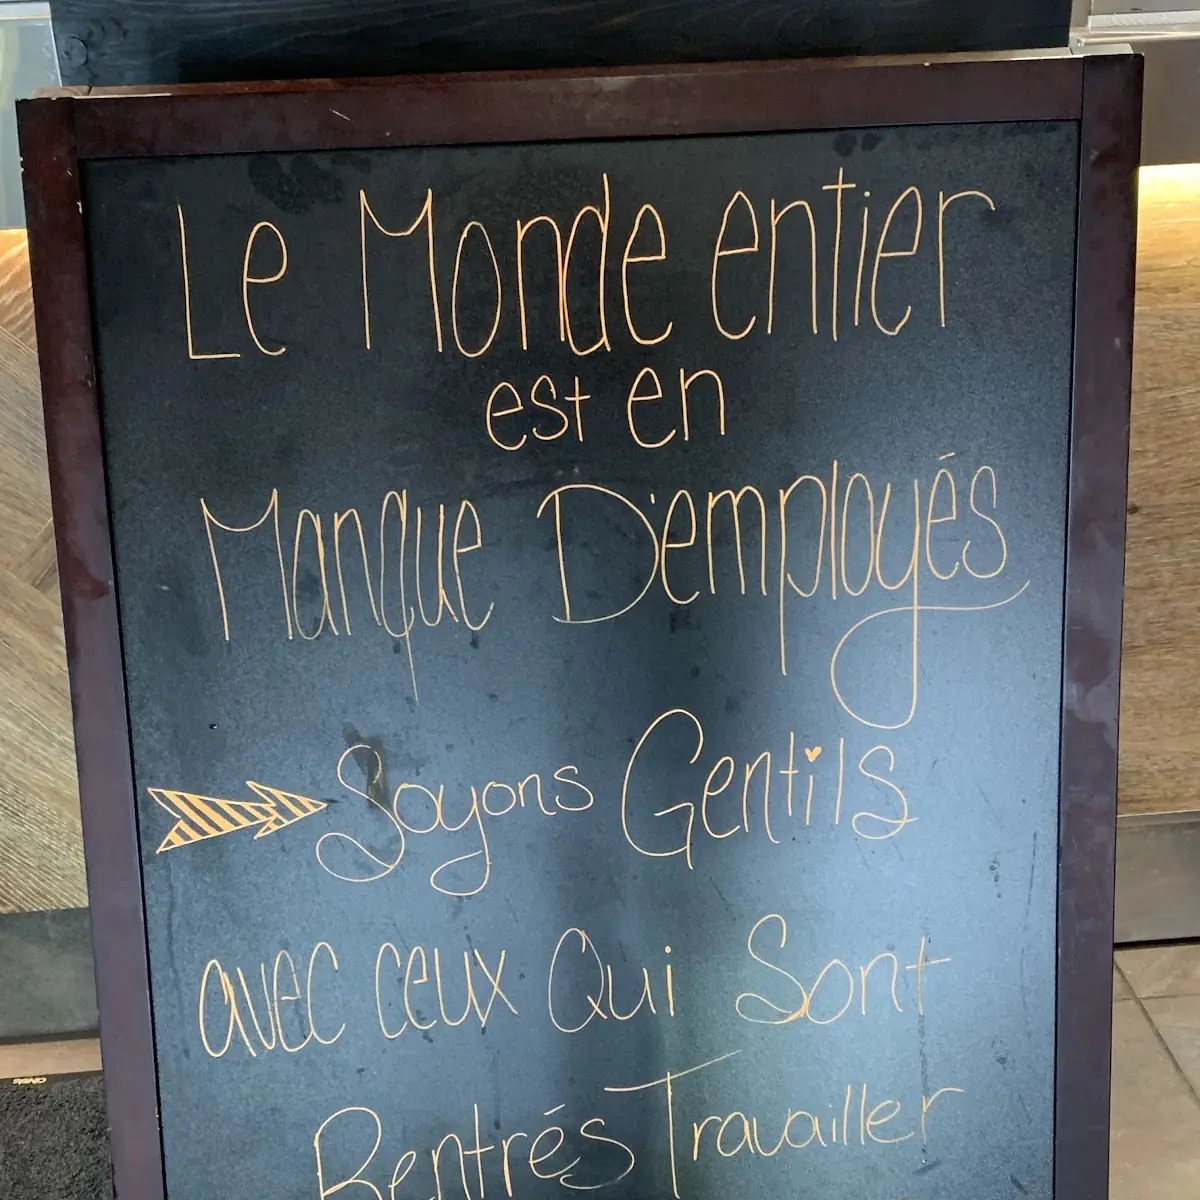 Le Monde entier
est en
Manque D'employés
Soyons Gentils
avec ceux Qui Sont
Rentrés Travailler